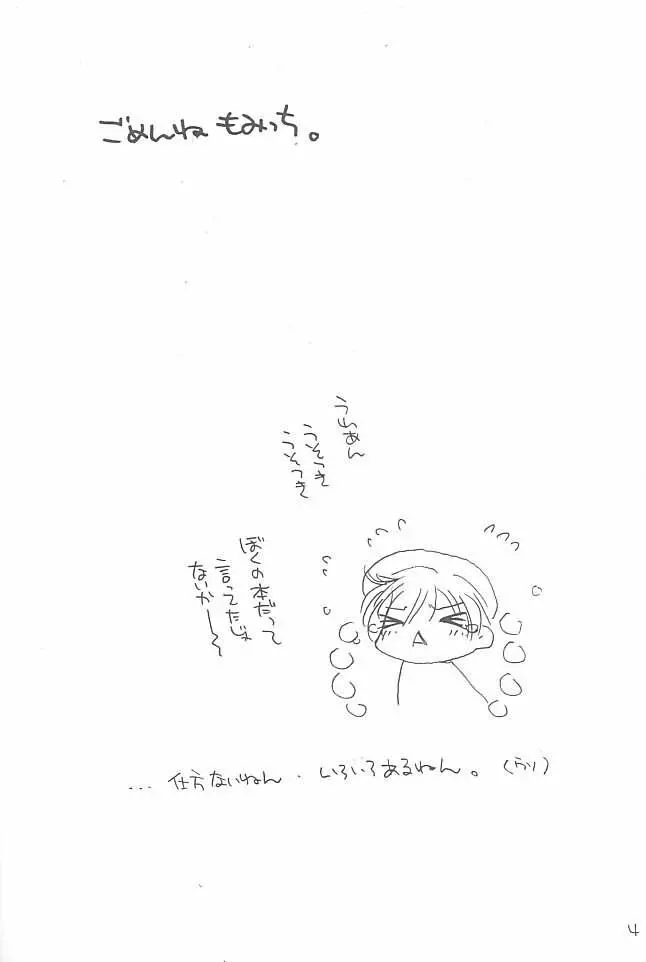 ごめんねもみっち。
うわあん
うそつき
うそつき
ぼくの本だって
言ってたじゃ
ないかー
... 仕方ないねん. いろいろあるねん。(らり)
4